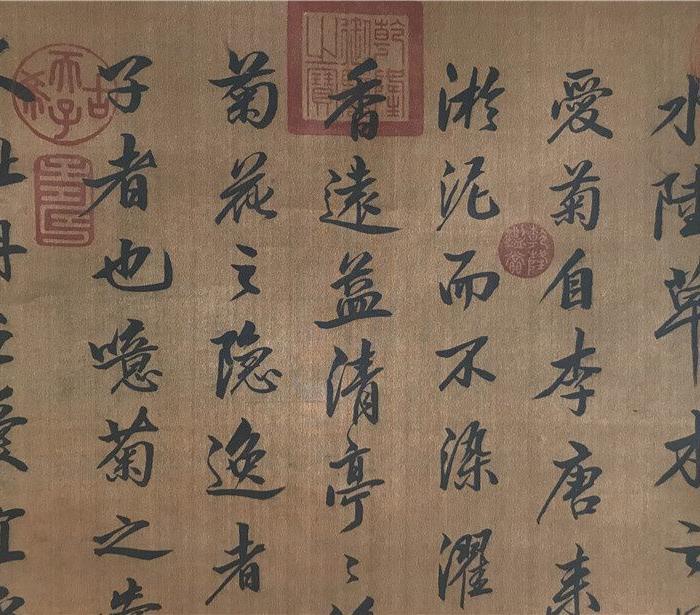 水陸草木之
愛菊自李唐来
淤泥而不染濯
香遠益清亭〻
菊花之隐逸者
子者也噫菊之
牡丹之愛宜
古稀天子